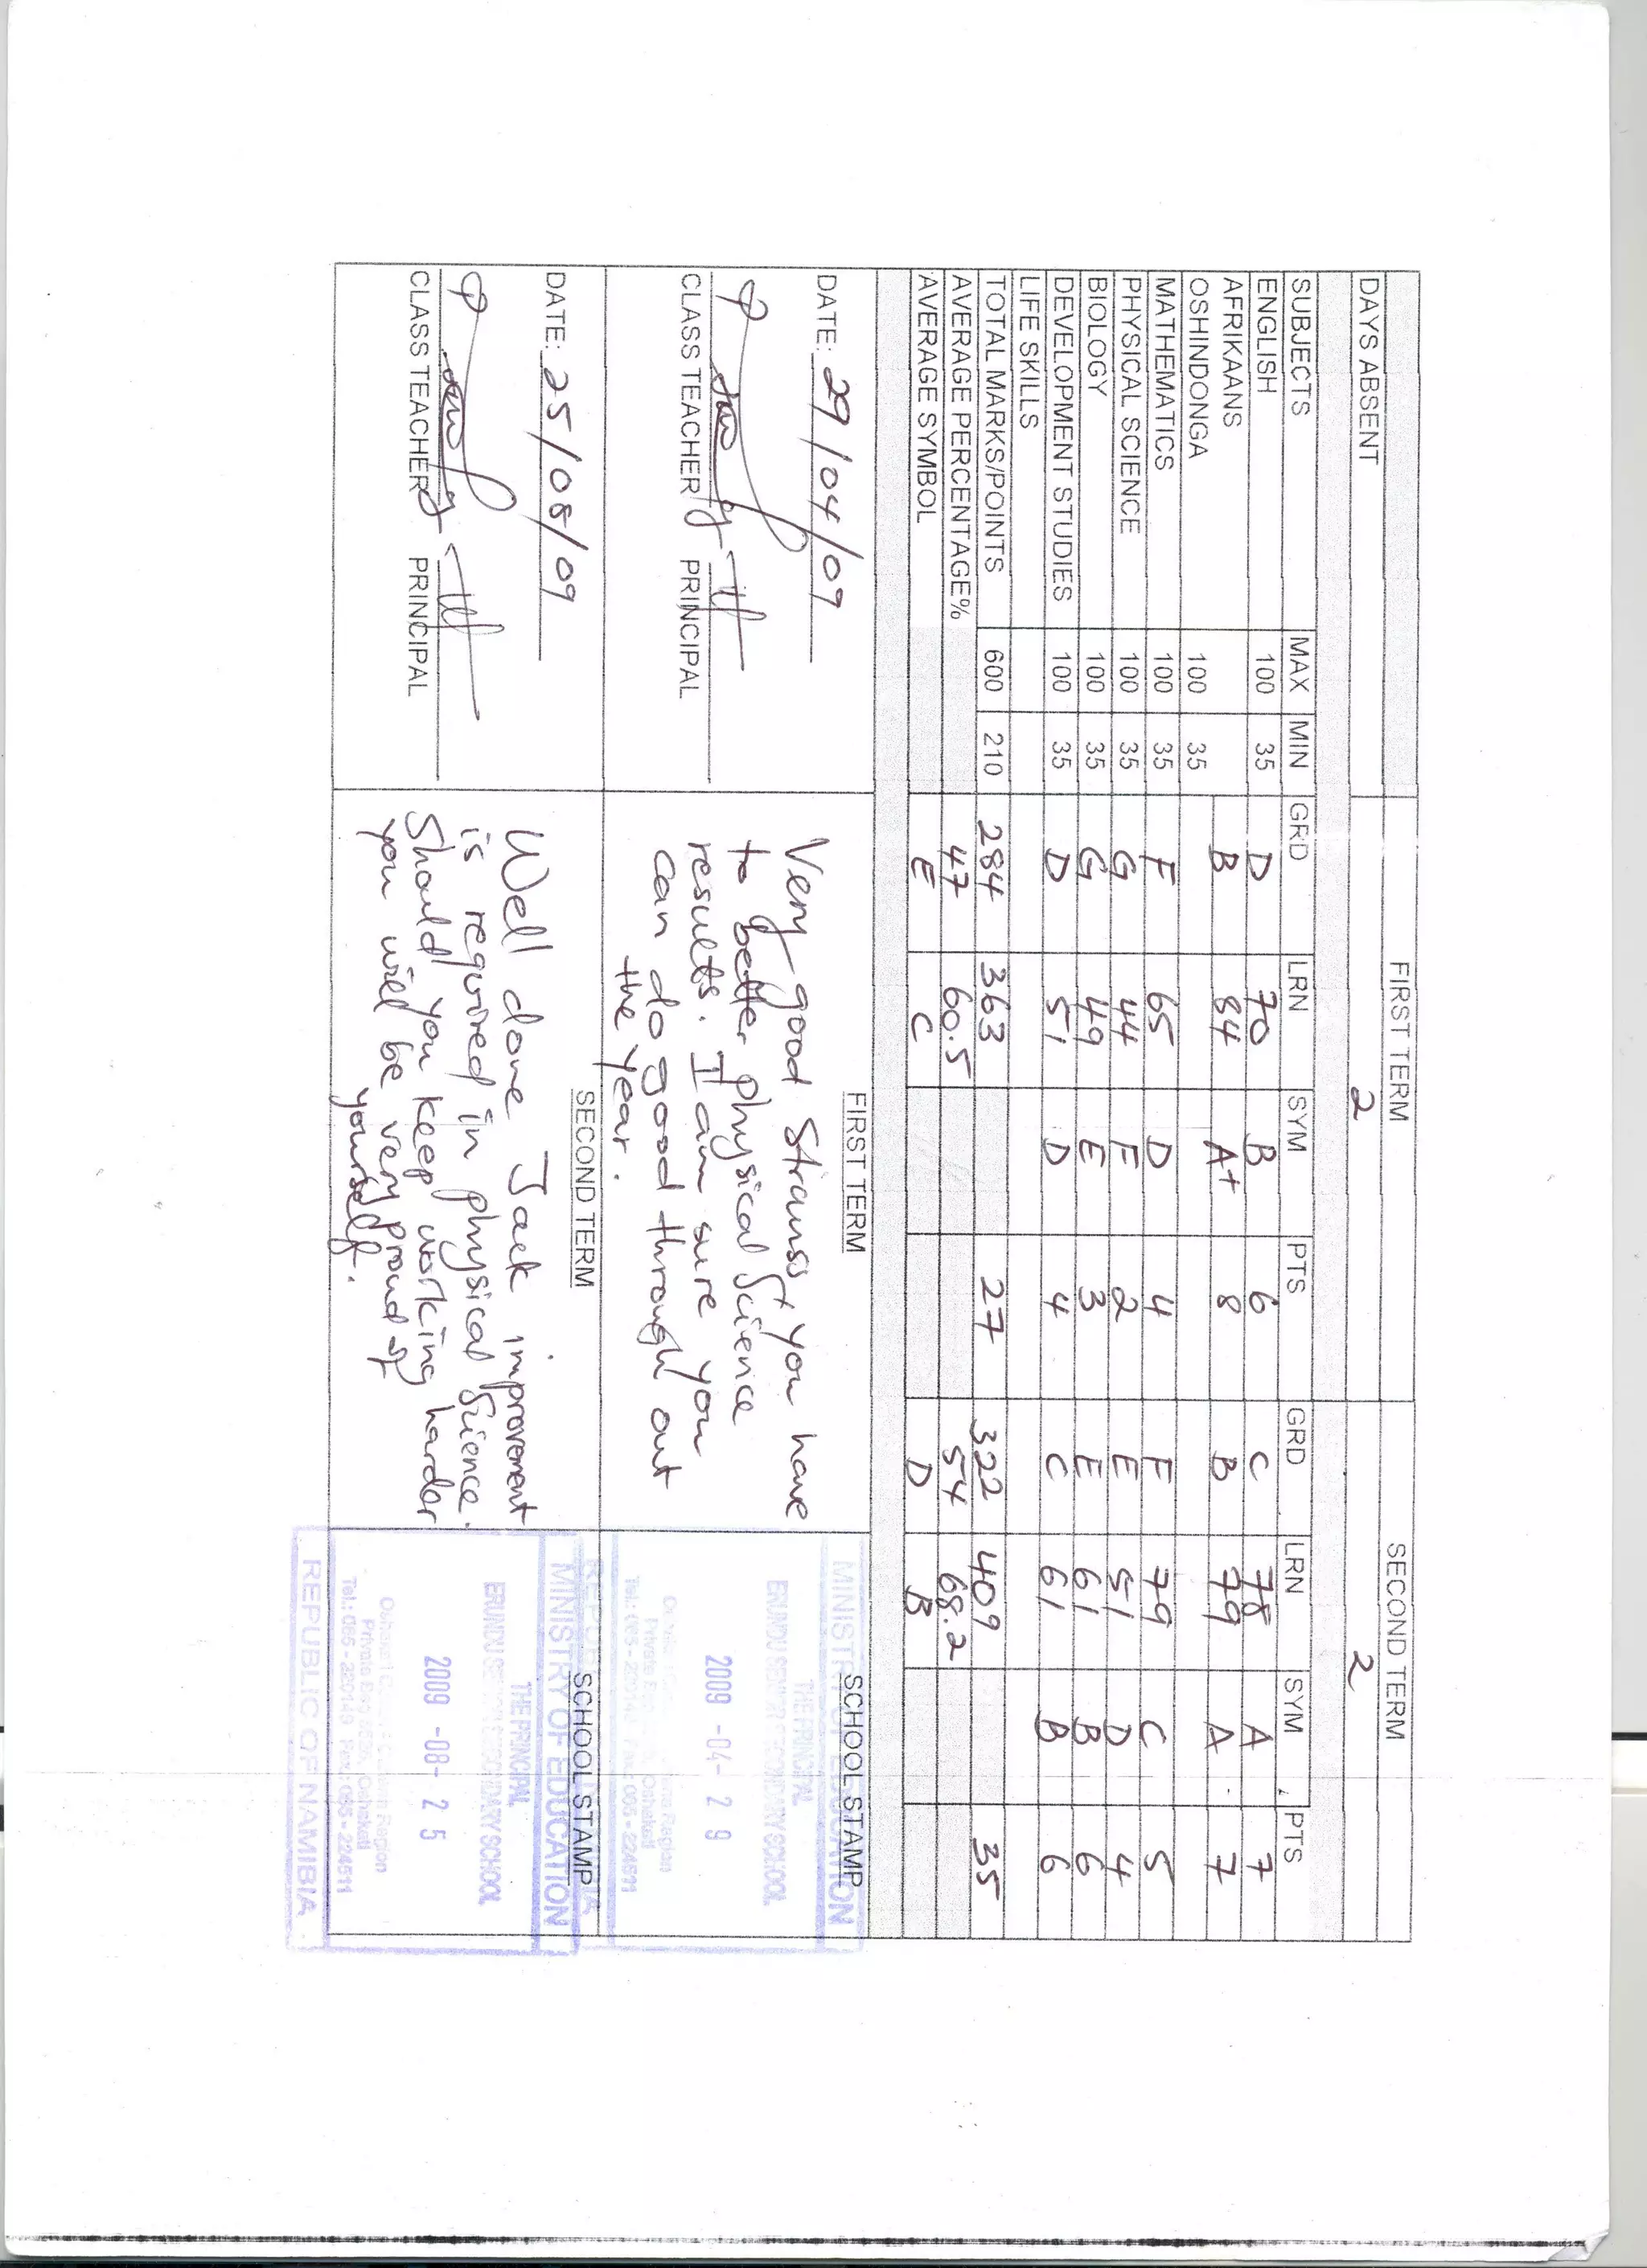 FIRST TERM SECOND TERM
DAYS ABSENT 2 2
SUBJECTS MAX MIN GRD LRN SYM PTS GRD LRN SYM PTS
ENGLISH 100 35 D 70 B 6 C 78 A 7
AFRIKAANS B 84 A+ 8 B 79 A 7
OSHINDONGA 100 35
MATHEMATICS 100 35 F 65 D 4 F 79 C 5
PHYSICAL SCIENCE 100 35 G 44 F 2 E 51 D 4
BIOLOGY 100 35 G 49 E 3 E 61 B 6
DEVELOPMENT STUDIES 100 35 D 51 D 4 C 61 B 6
LIFE SKILLS
TOTAL MARKS/POINTS 600 210 284 363 27 322 409 35
AVERAGE PERCENTAGE% 47 60.5 54 68.2
AVERAGE SYMBOL E C D B
FIRST TERM
SCHOOL STAMP
DATE: 29/04/09
CLASS TEACHER PRINCIPAL
Very good Strauss you have
to better physical Science
results. I am sure you
can do good through out
the year.
MINISTRY OF EDUCATION
THE PRINCIPAL
ERUNDU SENIOR SECONDARY SCHOOL
2009 -04- 2 9
Private Bag Oshakati
SECOND TERM
SCHOOL STAMP
DATE: 25/08/09
CLASS TEACHER PRINCIPAL
Well done Jack improvement
is required in physical Science.
Should you keep working harder
you will be very proud of
yourself.
MINISTRY OF EDUCATION
THE PRINCIPAL
ERUNDU SENIOR SECONDARY SCHOOL
2009 -08- 2 5
Region
Private Bag Oshakati
Tel.: 065 - 220149 Fax: 065 - 224511
REPUBLIC OF NAMIBIA